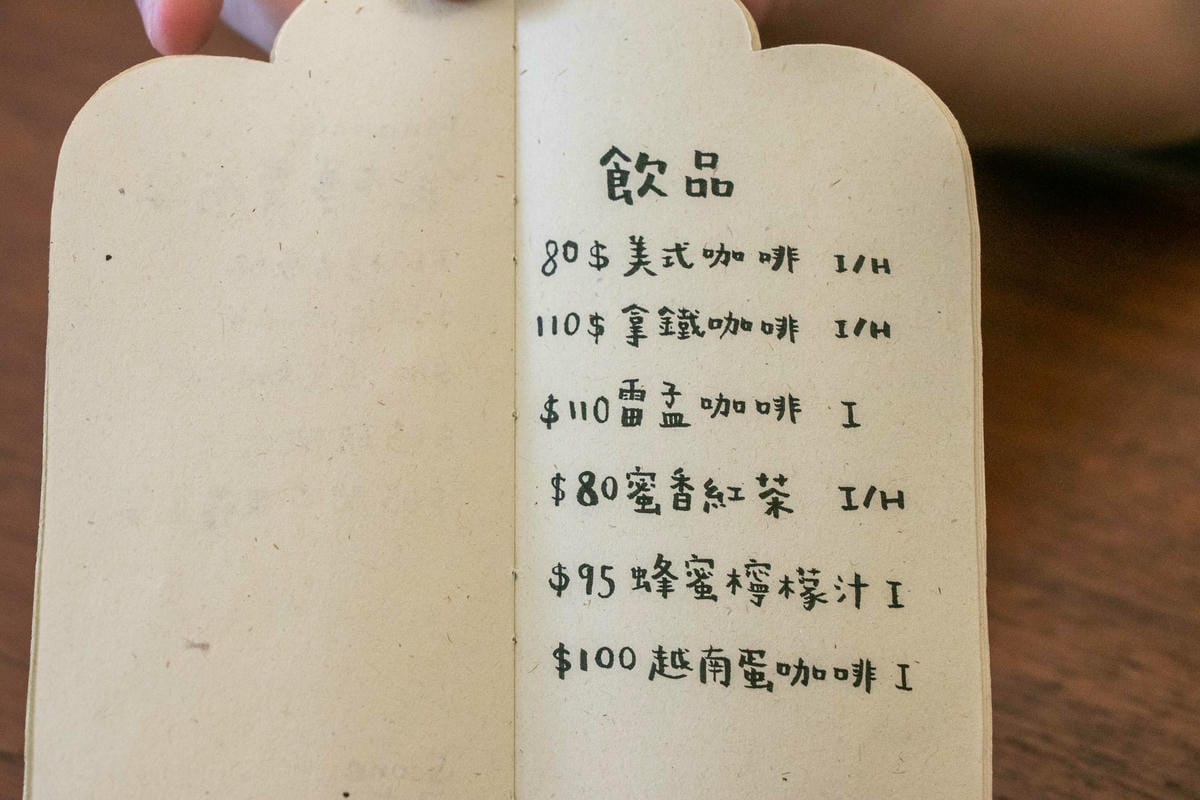 飲品
80$ 美式咖啡 I/H
110$ 拿鐵咖啡 I/H
$110 雷孟咖啡 I
$80 蜜香紅茶 I/H
$95 蜂蜜檸檬汁 I
$100 越南蛋咖啡 I